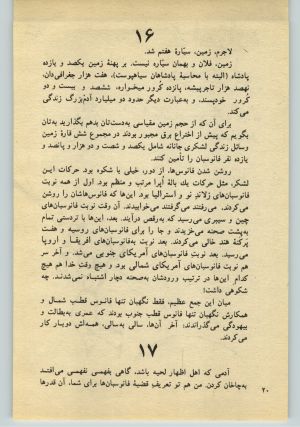 ۱۶
لاجرم، زمین، سیّارهٔ هفتم شد.
زمین، فلان و بهمان سیّاره نیست. بر پهنهٔ زمین یکصد و یازده
پادشاه (البته با محاسبهٔ پادشاهان سیاهپوست)، هفت هزار جغرافی‌دان،
نهصد هزار تاجرپیشه، پانزده کرور میخواره، ششصد و بیست و دو
کرور خودپسند، و به‌عبارت دیگر حدود دو میلیارد آدم‌بزرگ زندگی
می‌کند.
برای آن که از حجم زمین مقیاسی به‌دستتان بدهم بگذارید به‌تان
بگویم که پیش از اختراع برق مجبور بودند در مجموع شش قارهٔ زمین
وسائل زندگی لشکری جانانه شامل یکصد و شصت و دو هزار و پانصد و
یازده نفر فانوسبان را تأمین کنند.
روشن شدن فانوس‌ها، از دور، خیلی با شکوه بود. حرکات این
لشکر، مثل حرکات یك بالهٔ اُپرا مرتب و منظم بود. اول از همه نوبت
فانوسبان‌های زلاندِ نو و استرالیا بود. اینها که فانوس‌هاشان را روشن
می‌کردند، می‌رفتند می‌گرفتند می‌خوابیدند. آن وقت نوبت فانوسبان‌های
چین و سیبری می‌رسید که به‌رقص درآیند. بعد، این‌ها با تردستی تمام
به‌پشت صحنه می‌خزیدند و جا را برای فانوسبان‌های روسیه و هفت
پَرکنهٔ هند خالی می‌کردند. بعد نوبت به‌فانوسبان‌های آفریقا و اروپا
می‌رسید. بعد نوبتِ فانوسبان‌های آمریکای جنوبی می‌شد. و آخر سر
هم نوبت فانوسبان‌های آمریکای شمالی بود. و هیچ وقت خدا هم هیچ
کدام این‌ها در ترتیب ورودشان به‌صحنه دچار اشتباه نمی‌شدند. چه
شکوهی داشت!
میان این جمع عظیم، فقط نگهبان تنها فانوس قطب شمال و
همکارش نگهبان تنها فانوس قطب جنوب بودند که عمری به‌بطالت و
بیهودگی می‌گذراندند: آخر آن‌ها، سالی به‌سالی، همه‌اش دوبار کار
می‌کردند.
۱۷
آدمی که اهل اظهار لحیه باشد، گاهی بفهمی نفهمی می‌افتد
به‌چاخان کردن. من هم تو تعریفِ قضیهٔ فانوسبان‌ها برای شما، آن قدرها
۲۰